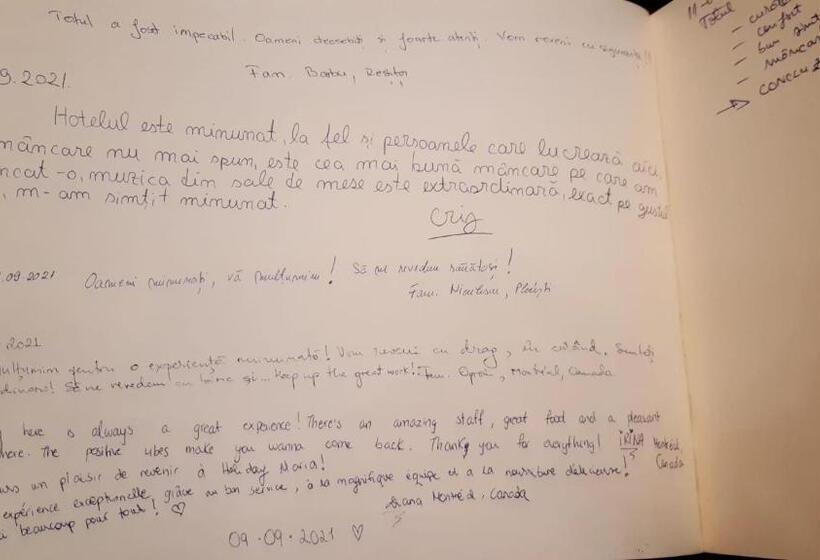 Totul a fost impecabil. Oameni deosebiți și foarte atenți. Vom reveni cu siguranță!!
Fam. Barbu, Reșița
9.2021.
Hotelul este minunat, la fel și persoanele care lucrează aici,
mâncare nu mai spun, este cea mai bună mâncare pe care am
ncat-o, muzica din sale de mese este extraordinară, exact pe gustul
, m-am simțit minunat.
Cris
.09.2021 Oameni minunați, vă mulțumim! Să ne revedem sănătoși!
Fam. Niculescu, Ploiești
2021
ulțumim pentru o experiență minunată! Vom reveni cu drag, în curând. Sunteți
Să ne revedem cu bine și... Keep up the great work! Fam. Montréal, Canada
here is always a great experience! There's an amazing staff, great food and a pleasant
here. The positive vibes make you wanna come back. Thank you for everything! IRINA Montréal,
Canada
urs un plaisir de revenir à Holiday Maria!
expérience exceptionnelle, grâce au bon service, à la magnifique équipe et a la nourriture délicieuse!
i beaucoup pour tout! ♡
Montréal, Canada
09.09.2021 ♡
Totul
- confort
- bun
- mâncare